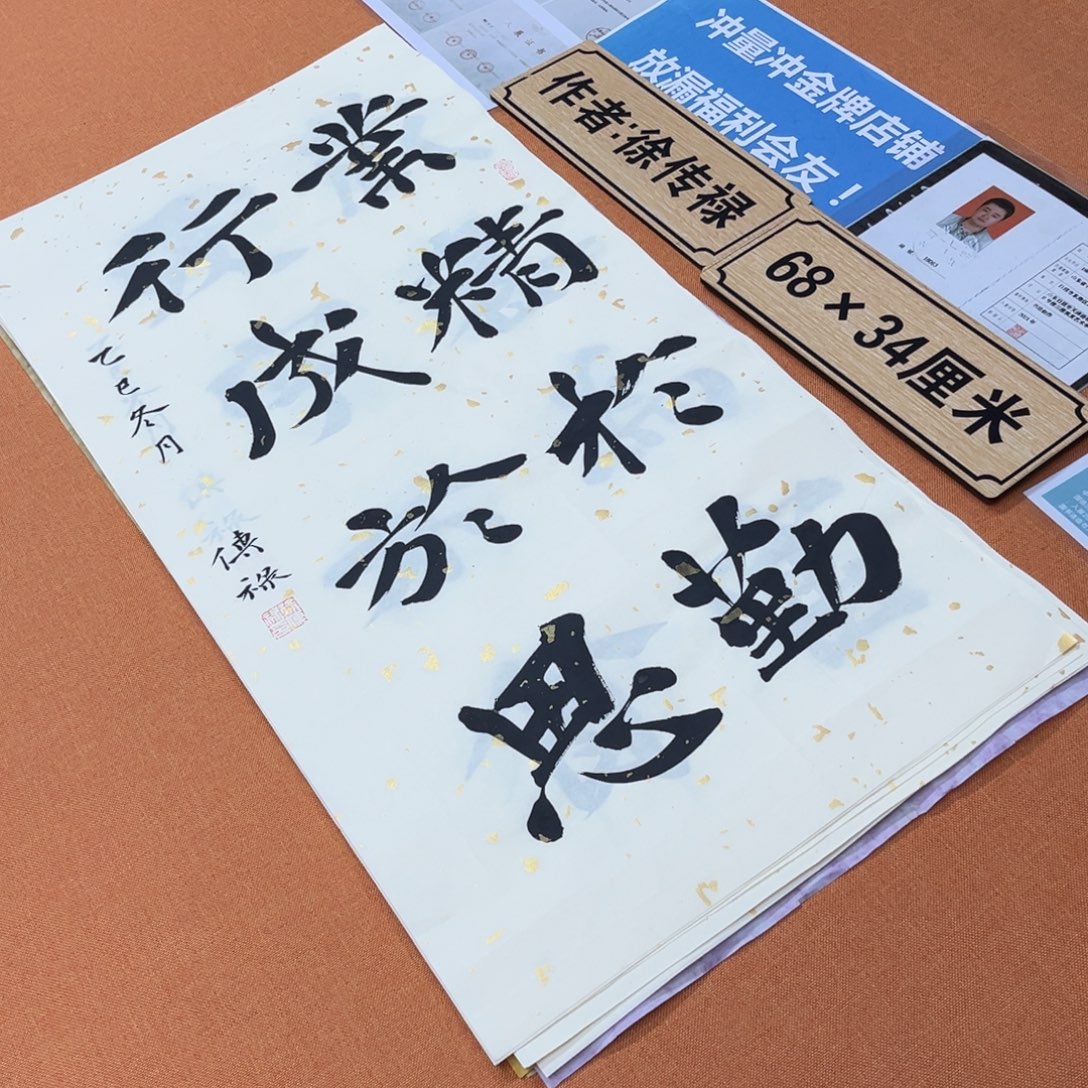 業精於勤
行成於思
乙巳冬月
傳禄
冲量冲金牌店铺
放漏福利会友！
作者:徐传禄
68×34厘米